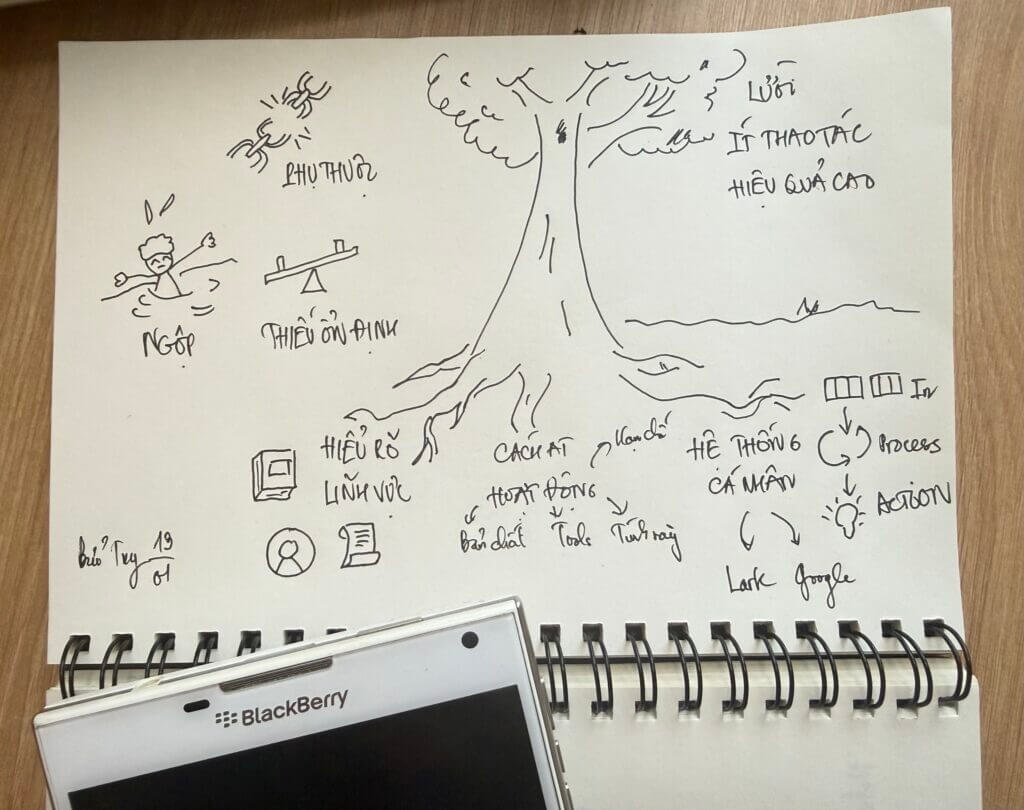 PHỤ THUỘC
NGỘP
THIẾU ỔN ĐỊNH
LƯỜI
ÍT THAO TÁC
HIỆU QUẢ CAO
HIỂU RÕ
LĨNH VỰC
CÁCH AI
HOẠT ĐỘNG
Hạn chế
Bản chất
Tools
HỆ THỐNG
CÁ NHÂN
In
Process
ACTION
Lark
Google
19
01
BlackBerry